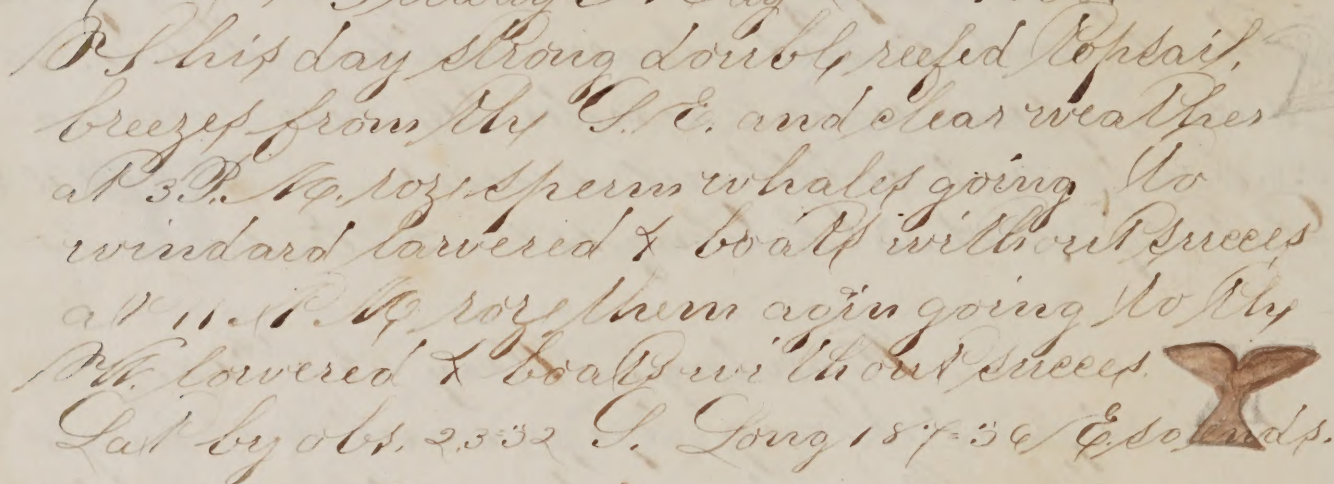 This day strong double reefed topsail.
breezes from the S. E. and clear weather
at 3 P. M. roze sperm whales going to
windard larvered 4 boats without succes
at 11 A M roze them agin going to the
W. lowered 4 boats without succes.
Lat by obs. 23=32 S. Long 187=36 E. so ends.